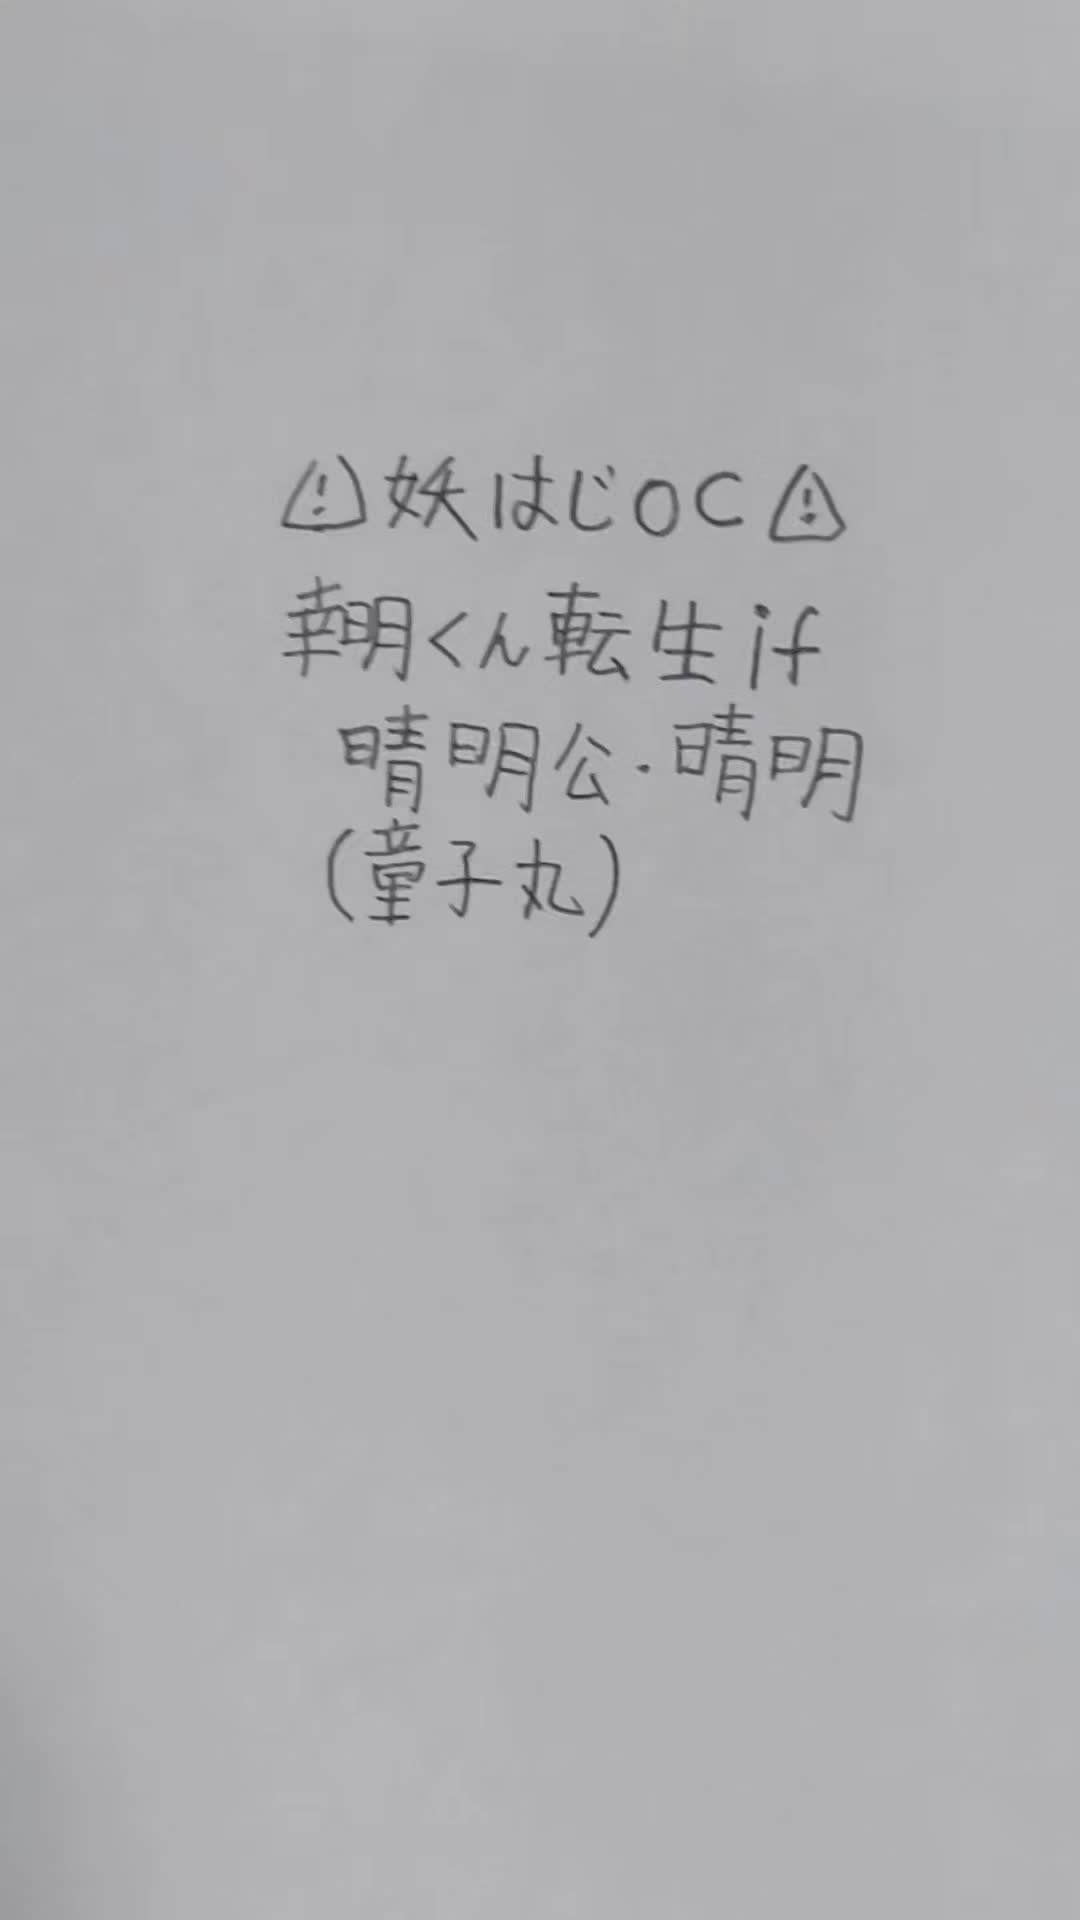 ⚠妖はじOC⚠
幸明くん転生if
晴明公・晴明
(童子丸)